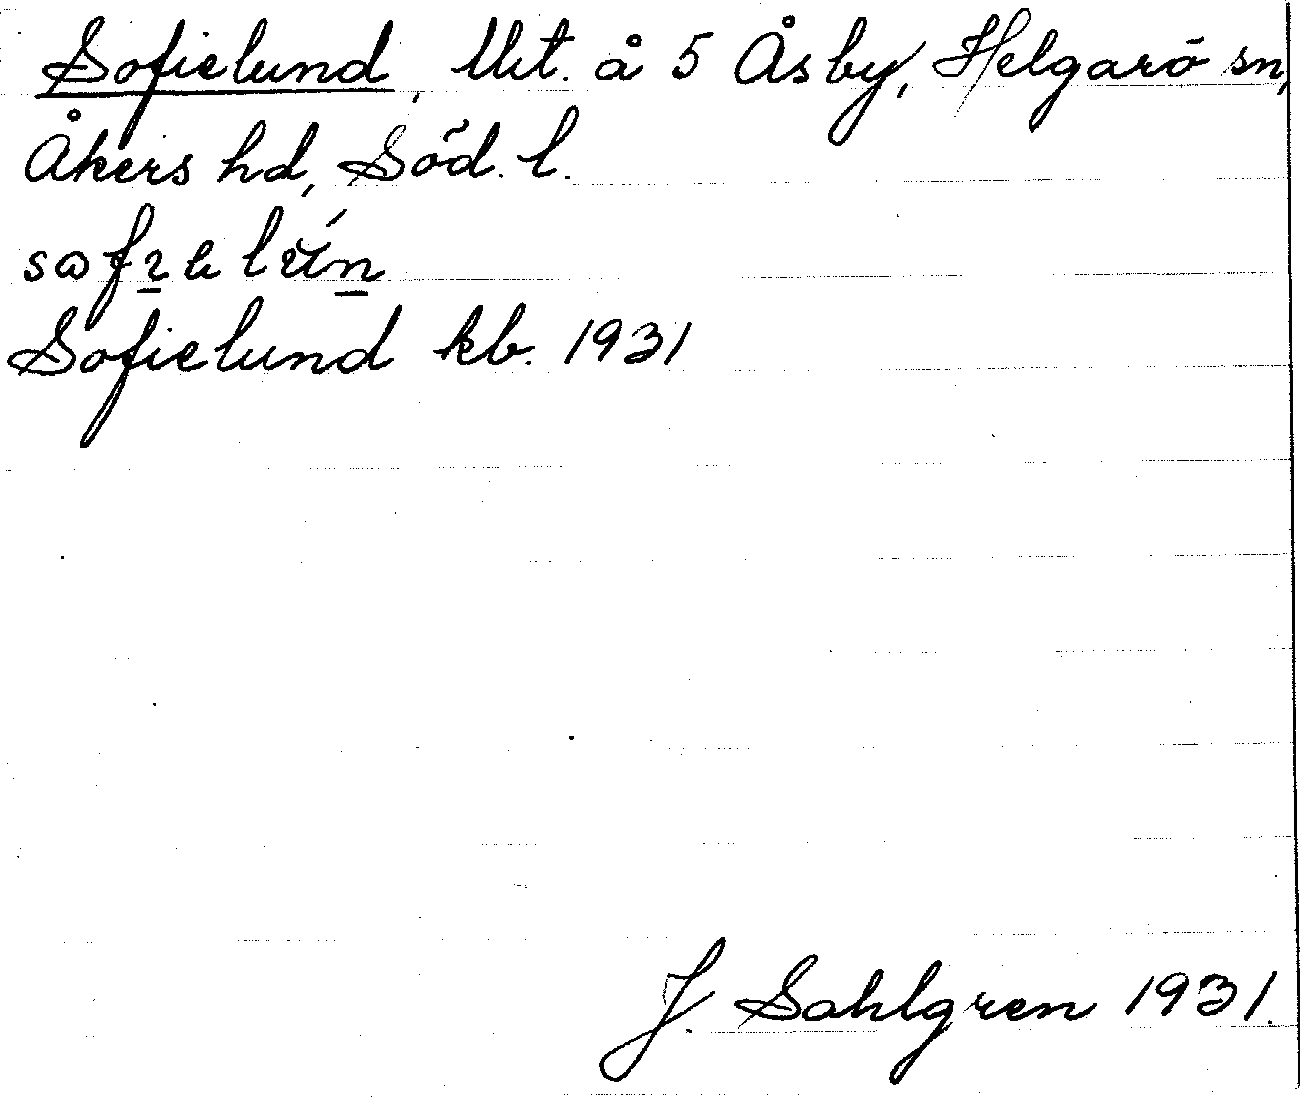 Sofielund, Utt. å 5 Åsby, Helgarö sn,
Åkers hd, Söd. l.
Sofielund kb. 1931
J. Sahlgren 1931.